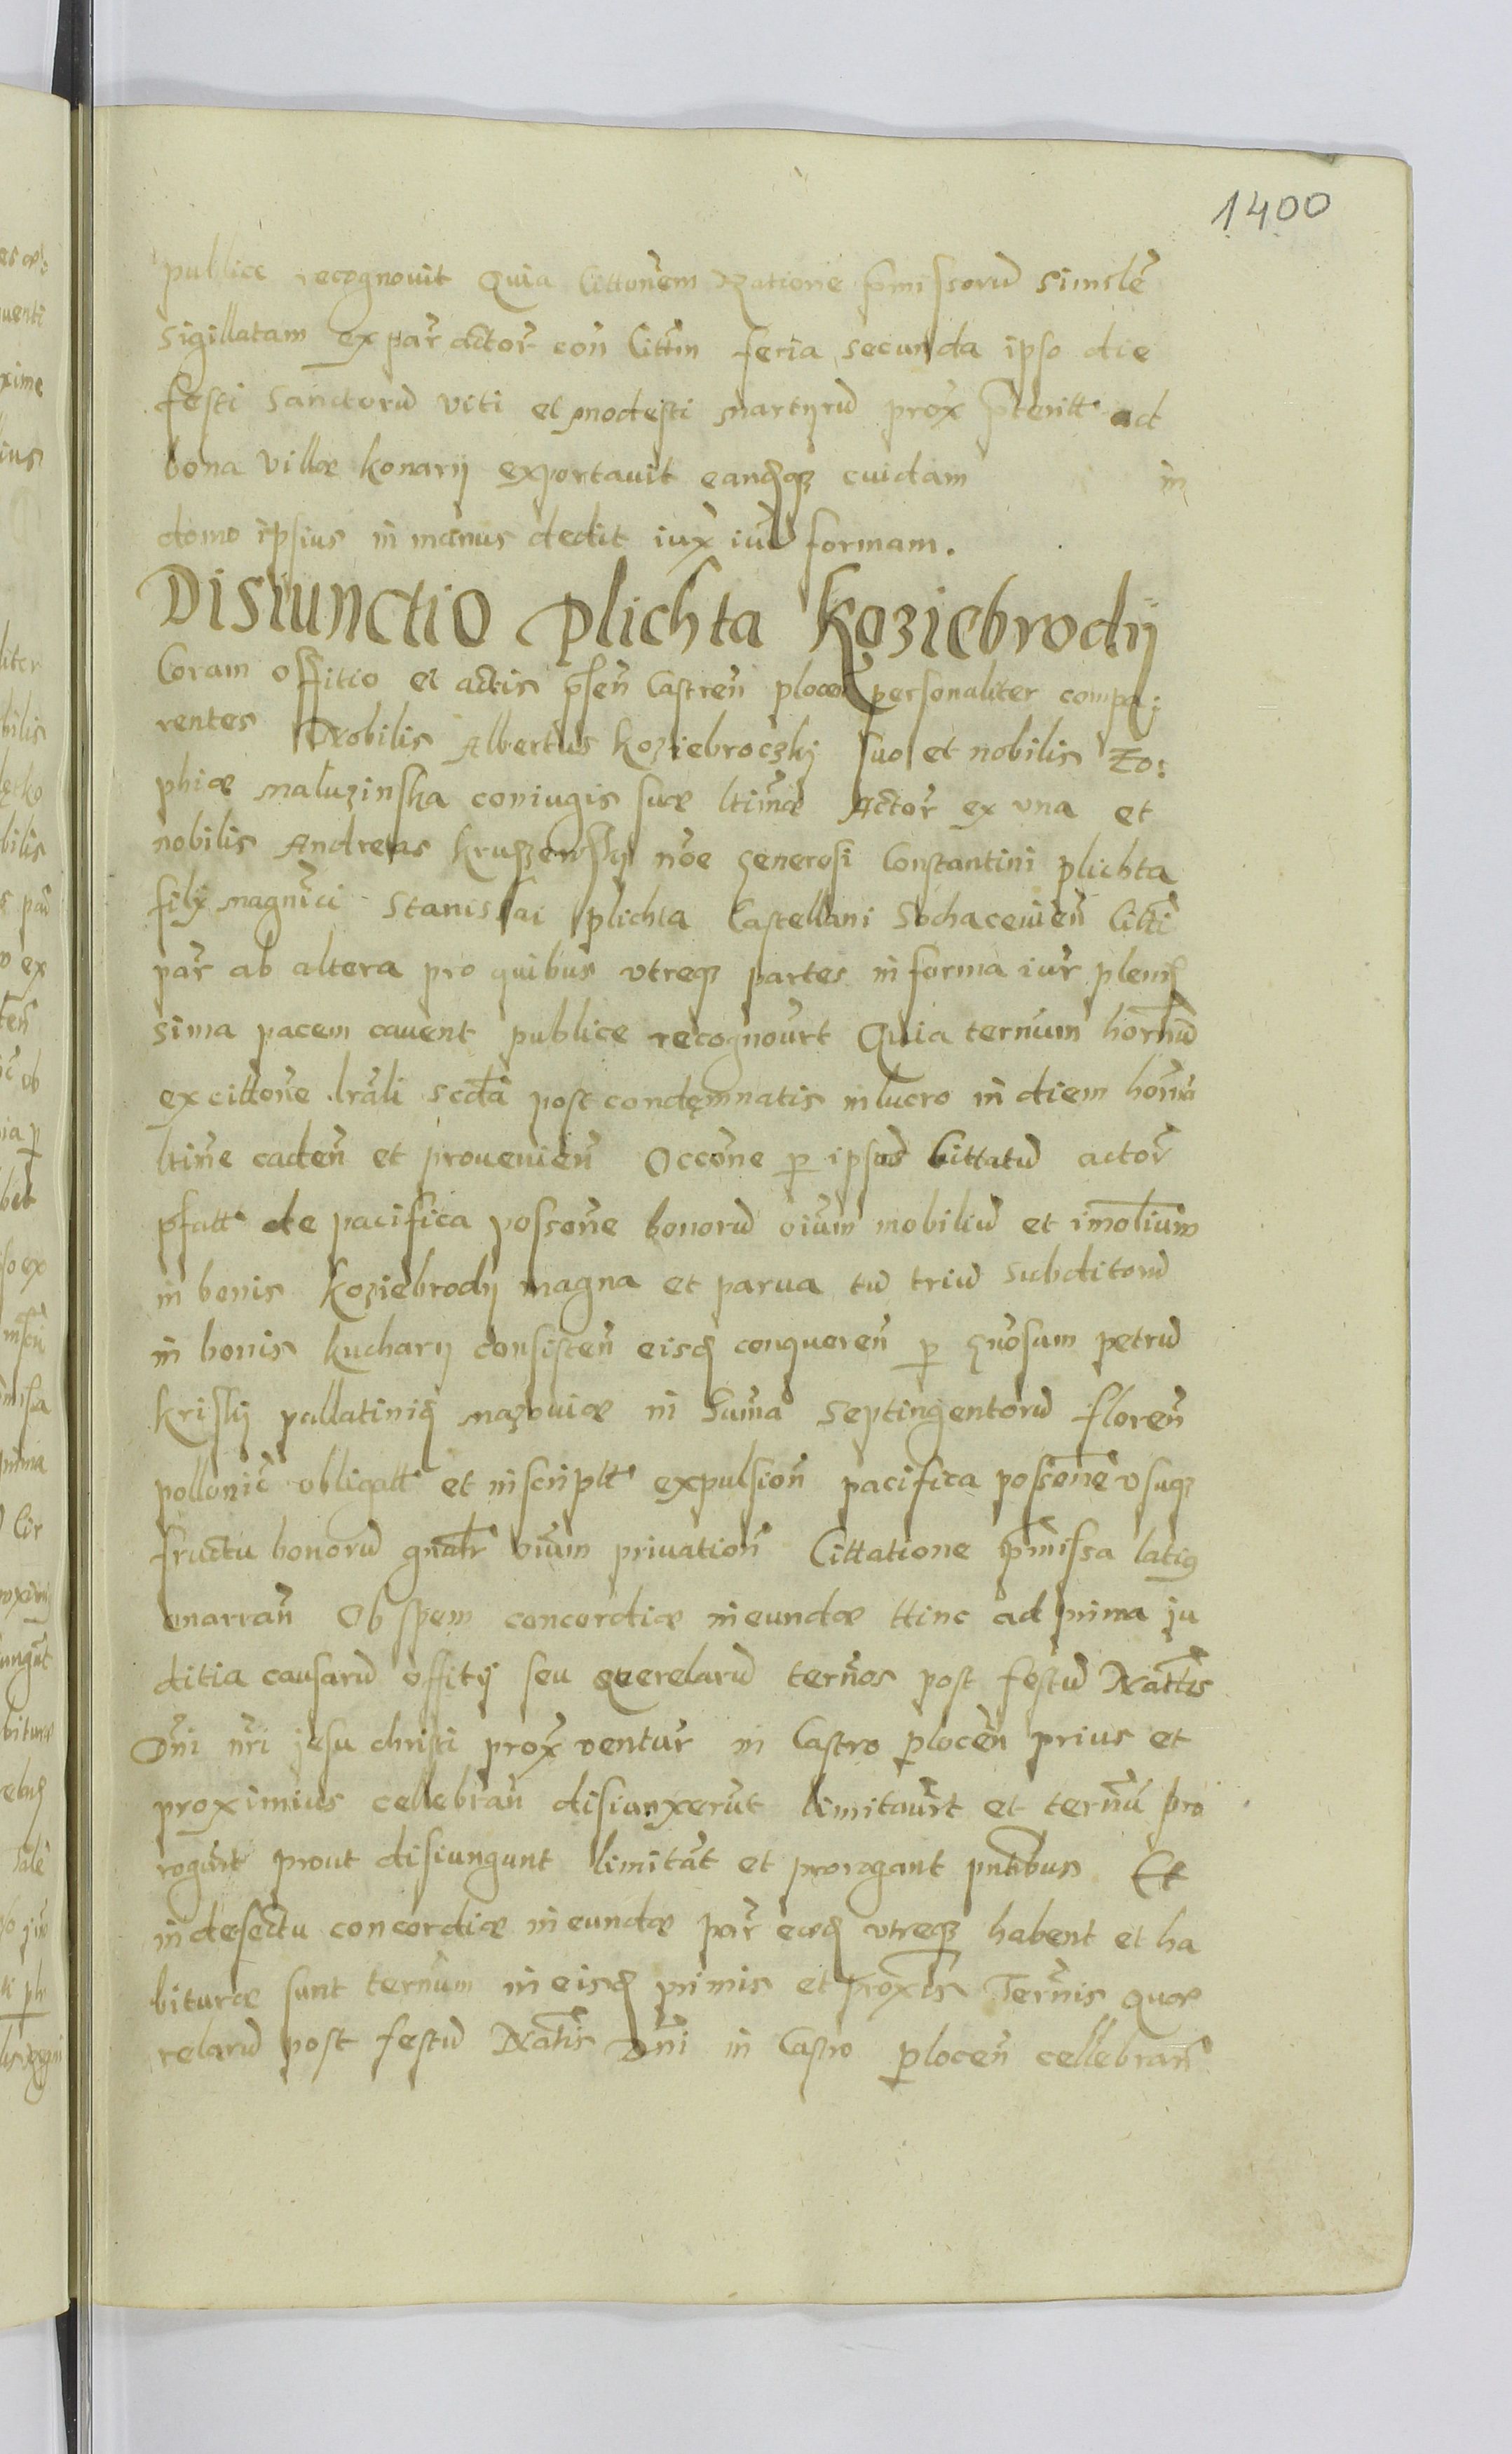 1400
publice recognouit Quia Cittonem Ratione pmissorū simile
sigillatam ex par actor con Cittm feria secunda ipso die
festi Sanctorū viti et modesti martyrū prox pterit ad
bona villæ konarÿ exportauit eandqz cuidam in
domo ipsius in manus dedit iux iur formam.
Disiunctio plichta Koziebrodÿ
Coram offitio et actis psen Castren plocen personaliter compa:
rentes Nobilis Albertus koziebroczkj suo et nobilis Zo:
phiæ maluzinska coniugis suæ ltimæ Actor ex vna et
nobilis Andreas noe generosi Constantini plichta
filÿ magnici Stanislai plichta Castellani Sochacevien Citti
par ab altera pro quibus vtreqz partes in forma iur plenis
sima pacem cauent publice recognourt Quia ternum hornū
ex cittone lrali scdã post condemnatis in lucro in diem hornā
ltime caden et prouenien Occone p ipsos Cittatū actor
pfatt de pacifica possone bonorū oium mobiliū et imolium
in bonis koziebrodÿ magna et parua tū triū subditorū
in bonis kucharÿ consisten eisd conqueren p gnosum petrū
kriskj pallatinid mazouiæ in Suma Septingentorū floren
pollonic obligatt et inscriptt expulsion pacifica possone vsuqz
fructu bonorū gnalr oium priuation Cittatione pmissa latiq
enarran Ob spem concordiæ ineundæ ttinc ad prima ju
ditia causarū offitÿ seu querelarū ternos post festū Nattis
Dni nri jesu christi prox ventur in Castro plocen prius et
proximius cellebran disiunxerūt limitaurt et ternū pro
rogart prout disiungunt limitāt et prorogant pntibus Et
in defectu concordiæ ineundæ par eæd vtreqz habent et ha
bituræ sunt ternum in eisd primis et proxis Ternis Quæ
relarū post festū Natis Dni in Castro plocen cellebran